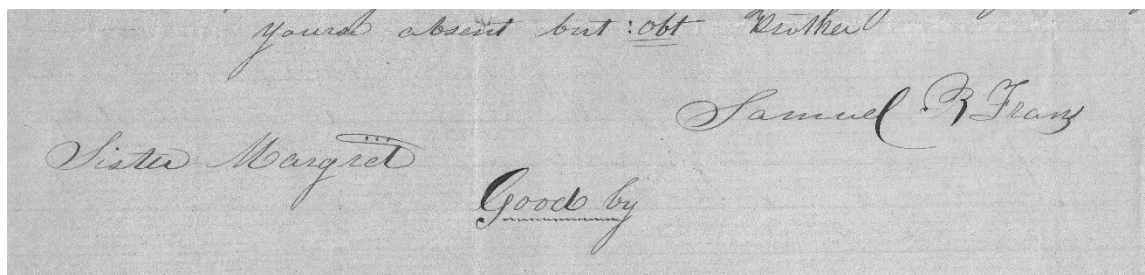 yours absent but : obt Brother
Samuel R Franz
Sister Margret
Good by